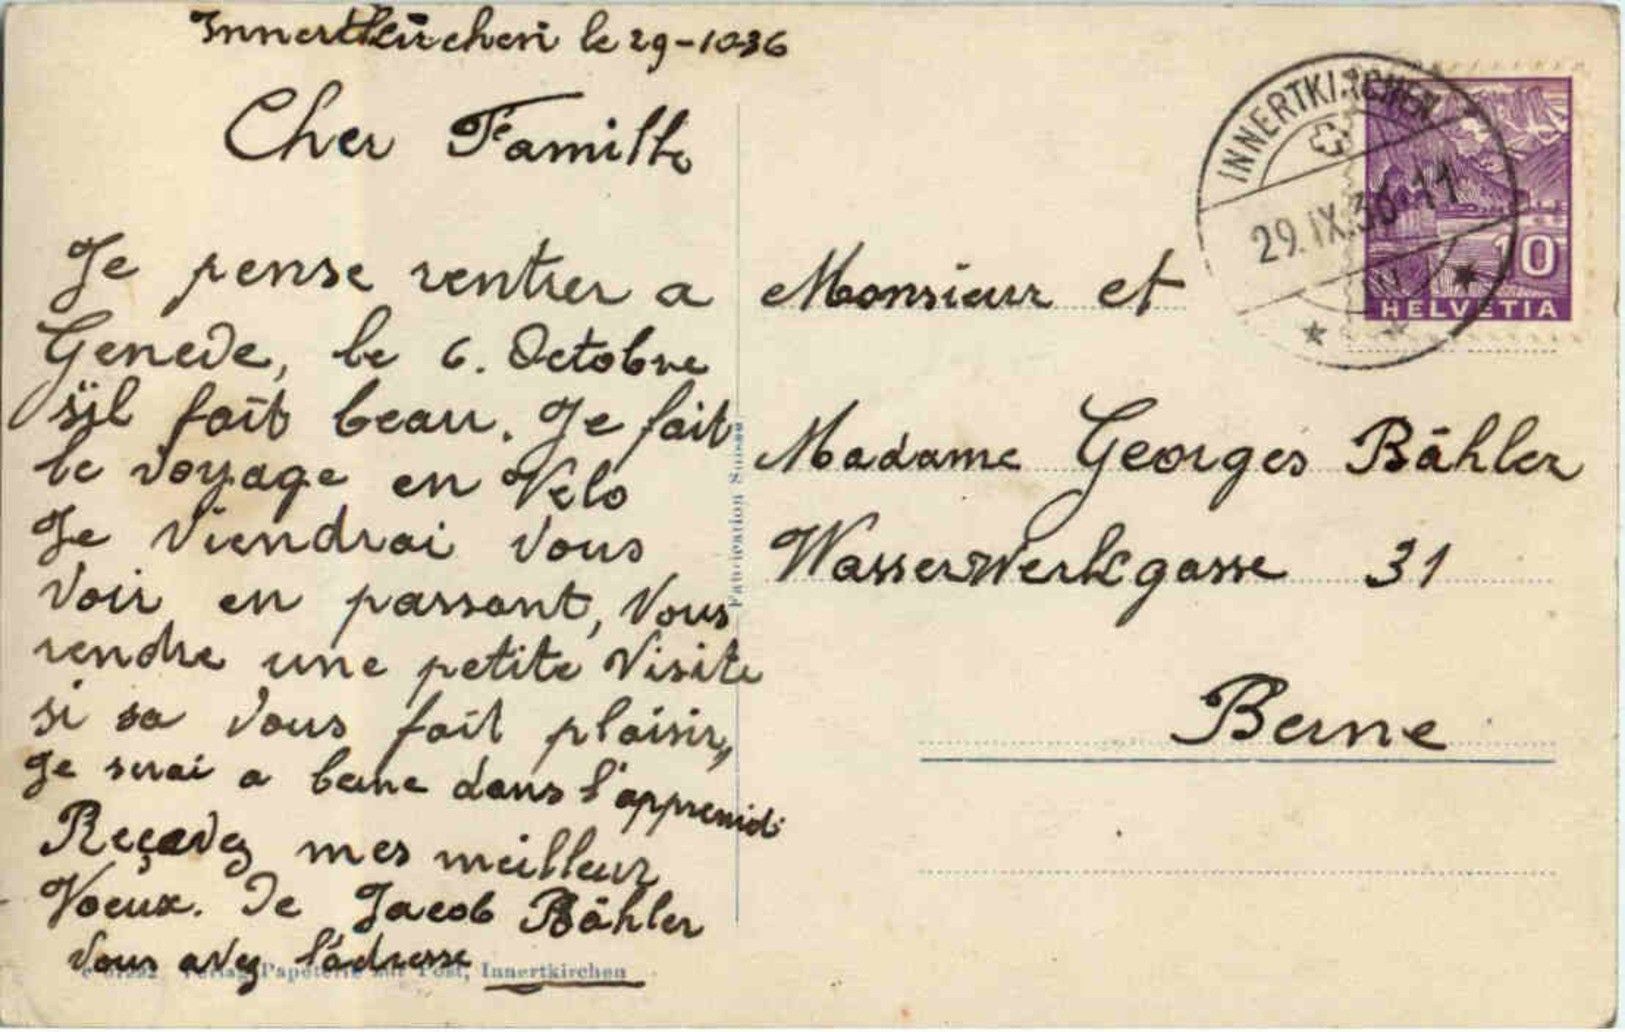 Innertkirchen le 29-10-36
Cher Famille
Je pense rentrer a
Geneve, le 6. Octobre
s'il fait beau. Je fait
le voyage en Vélo
Je Viendrai vous
voir en passant, Vous
rendre une petite Visite
si sa vous fait plaisir,
Je serai a berne dans l'apremidi
Reçevez mes meilleur
Voeux. De Jacob Bähler
Vous avez l'adresse
Papeterie zur Post, Innertkirchen
Fabrication Suisse
INNERTKIRCHEN
29.IX.36-11
10
HELVETIA
Monsieur et
Madame Georges Bähler
Wasserwerkgasse 31
Berne